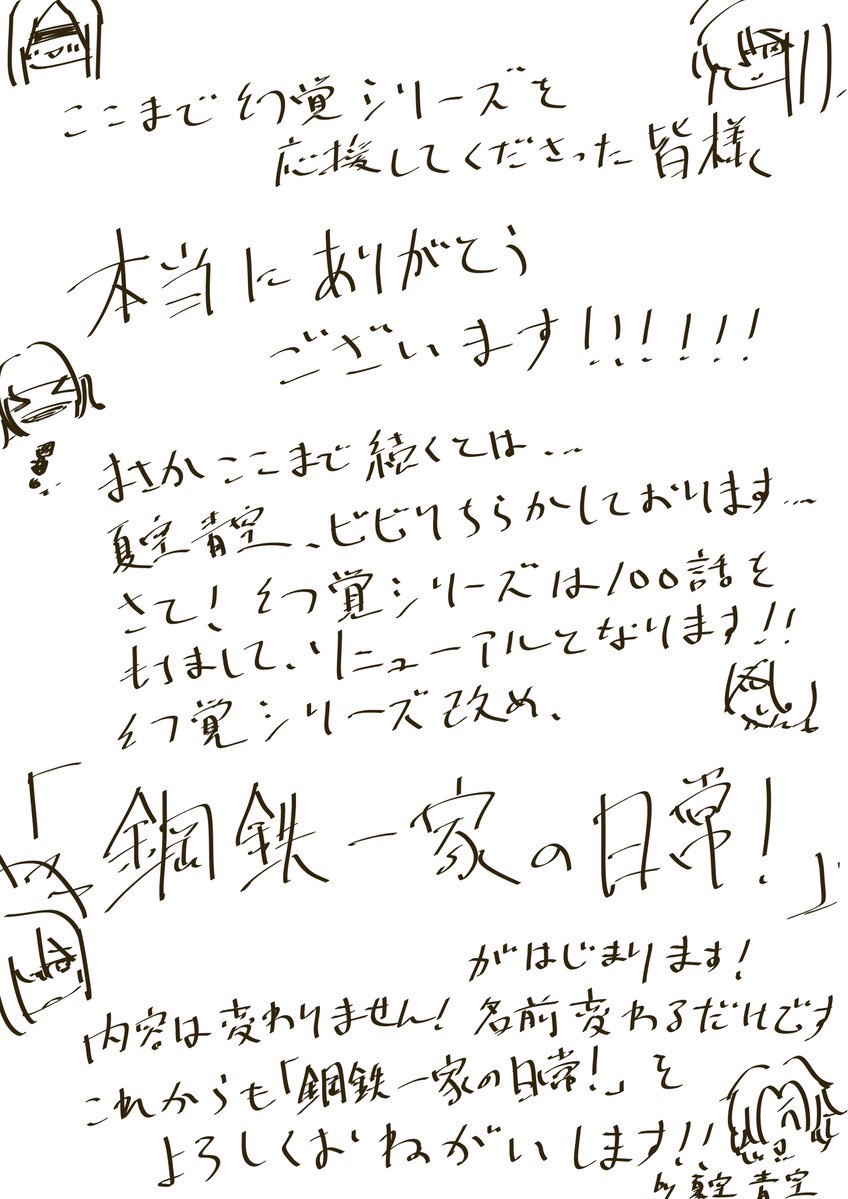 ここまで幻覚シリーズを
応援してくださった皆様、
本当にありがとう
ございます!!!!!!
まさかここまで続くては...
夏空青空、ビビりちらかしております...
さて!幻覚シリーズは100話を
もちまして、リニューアルとなります!!
幻覚シリーズ改め、
「鋼鉄一家の日常!」
がはじまります!
内容は変わりません!名前変わるだけです
これからも「鋼鉄一家の日常!」を
よろしくおねがいします!!
by 夏空 青空